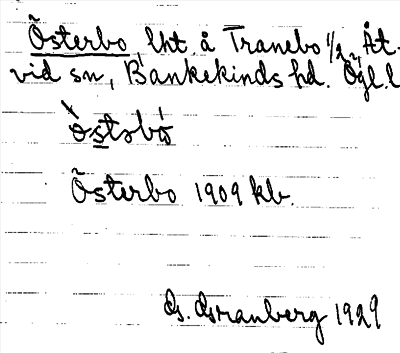 Österbo, lht å Tranebo 1/2, Åt-
vid sn, Bankekinds hd. Ögl. l
Österbo 1909 kb.
Granberg 1929